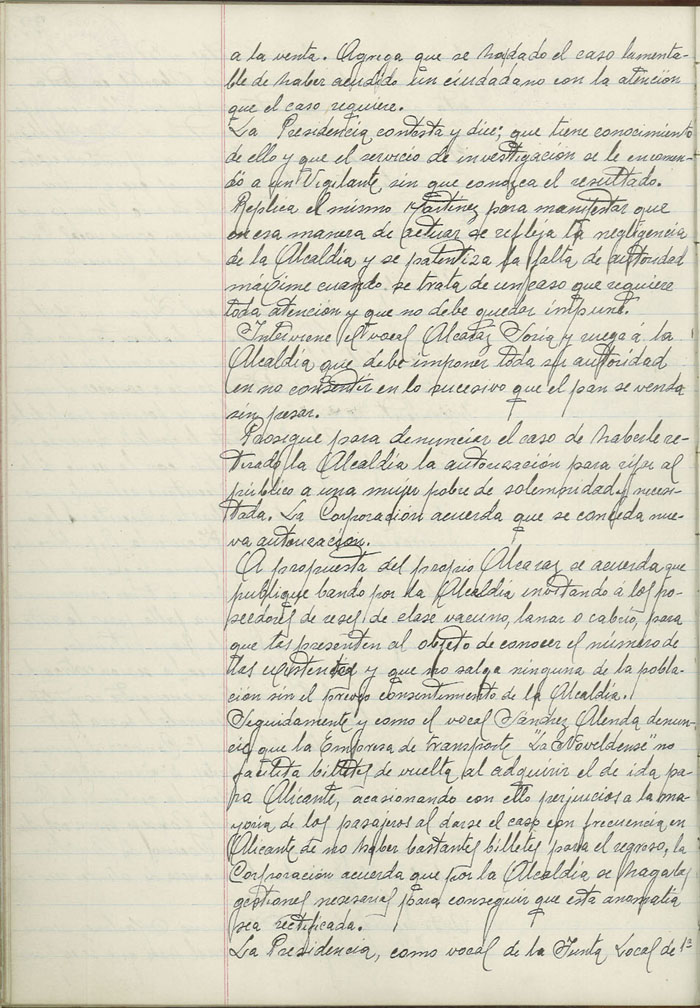 a la venta. Agrega que se ha dado el caso lamenta-
ble de haber acudido un ciudadano con la atención
que el caso requiere.
La Presidencia contesta y dice; que tiene conocimiento
de ello y que el servicio de investigación se le encomen-
dó a un Vigilante, sin que conozca el resultado.
Replica el mismo Martinez para manifestar que
en esa manera de actuar se refleja la negligencia
de la Alcaldía y se patentiza la falta de autoridad
máxime cuando se trata de un caso que requiere
toda atención y que no debe quedar impune.
Interviene el vocal Alcaraz Soria y ruega á la
Alcaldía que debe imponer toda su autoridad
en no consentir en lo sucesivo que el pan se venda
sin pesar.
Prosigue para denunciar el caso de haberle re-
tirado la Alcaldía la autorización para rifar al
público a una mujer pobre de solemnidad y necesi-
tada. La Corporación acuerda que se conceda nue-
va autorización.
A propuesta del propio Alcaraz se acuerda que
publique bando por la Alcaldía invitando á los po-
seedores de reses de clase vacuno, lanar o cabrío, para
que las presenten al objeto de conocer el número de
las existentes y que no salga ninguna de la pobla-
ción sin el previo consentimiento de la Alcaldía.
Seguidamente y como el vocal Sánchez Alenda denun-
cie que la Empresa de transporte "La Noveldense" no
facilita billetes de vuelta al adquirir el de ida pa-
ra Alicante, ocasionando con ello perjuicios a la ma-
yoría de los pasajeros al darse el caso con frecuencia en
Alicante de no haber bastantes billetes para el regreso, la
Corporación acuerda que por la Alcaldía se hagan las
gestiones necesarias para conseguir que esta anomalía
sea rectificada.
La Presidencia, como vocal de la Junta Local de 1ª